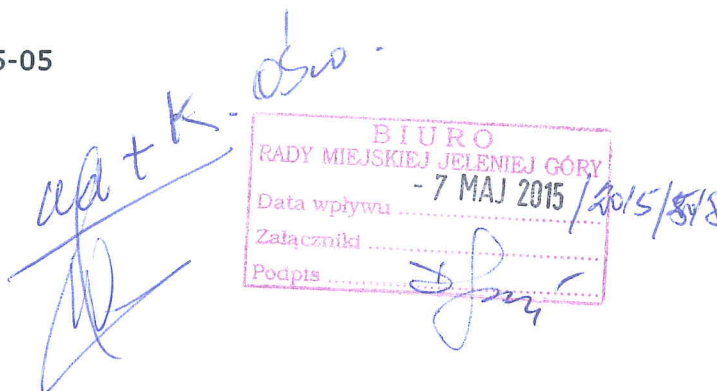 5-05
+ K. ośw.
BIURO
RADY MIEJSKIEJ JELENIEJ GÓRY
Data wpływu - 7 MAJ 2015 /2015
Załączniki
Podpis